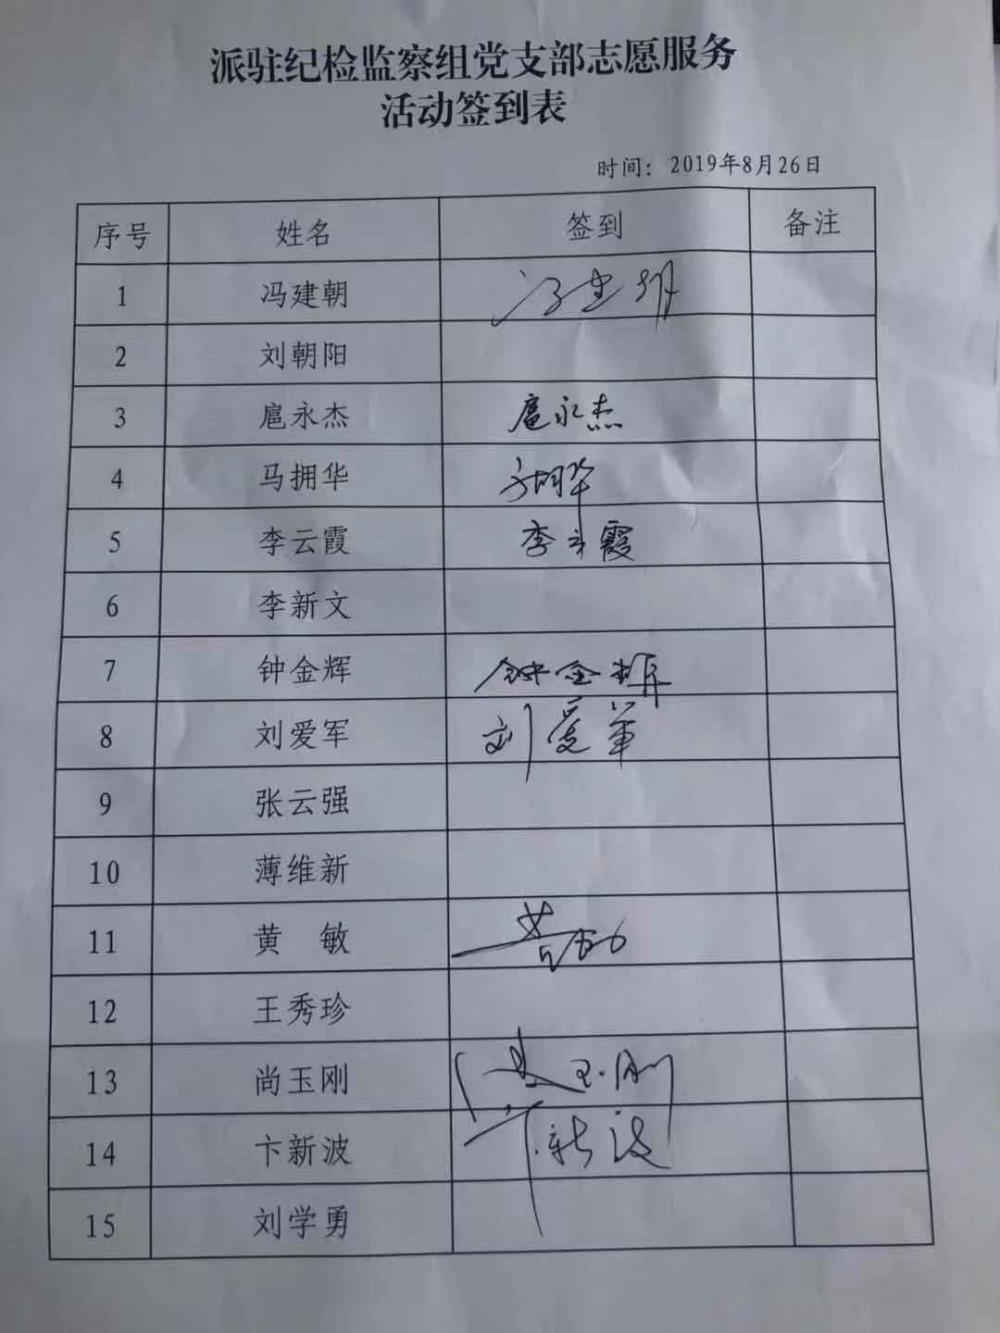 派驻纪检监察组党支部志愿服务
活动签到表
时间：2019年8月26日
序号 姓名 签到 备注
1 冯建朝 冯建朝
2 刘朝阳
3 扈永杰 扈永杰
4 马拥华 马拥华
5 李云霞 李云霞
6 李新文
7 钟金辉 钟金辉
8 刘爱军 刘爱军
9 张云强
10 薄维新
11 黄 敏 黄敏
12 王秀珍
13 尚玉刚 尚玉刚
14 卞新波 卞新波
15 刘学勇